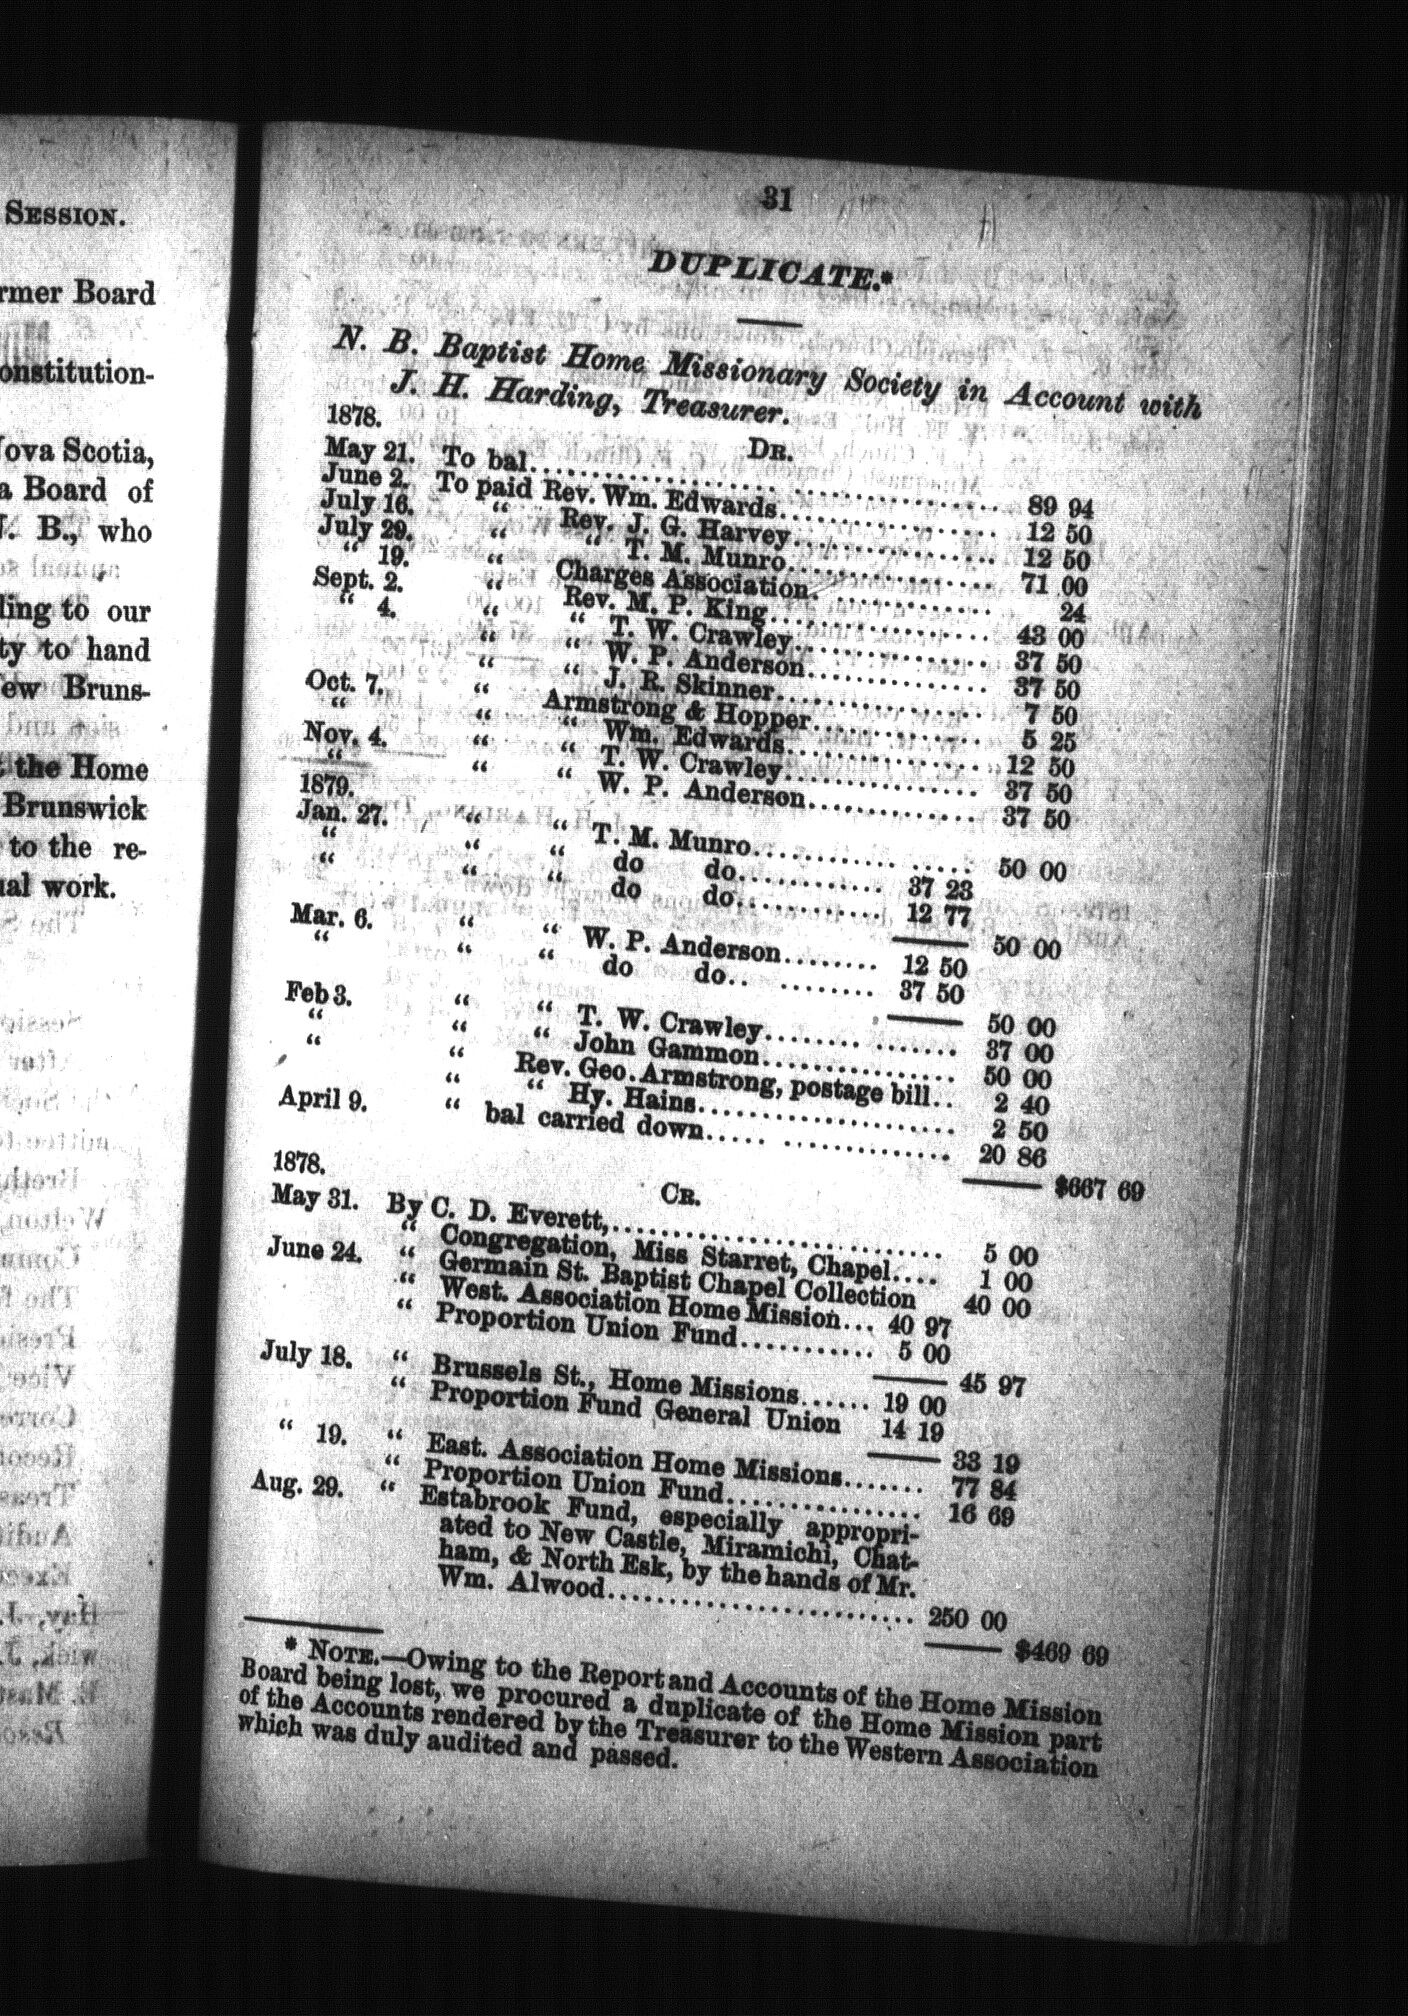 SESSION.
rmer Board
onstitution-
ova Scotia,
a Board of
. B., who
ling to our
ty to hand
ew Bruns-
the Home
Brunswick
to the re-
ual work.
31
DUPLICATE.*
N. B. Baptist Home Missionary Society in Account with
J. H. Harding, Treasurer.
1878.
DR.
May 21. To bal........................ 89 94
June 2. To paid Rev. Wm. Edwards........ 12 50
July 16. “ Rev. J. G. Harvey........ 12 50
July 29. “ “ T. M. Munro........ 71 00
“ 19. “ Charges Association........ 24
Sept. 2. “ Rev. M. P. King........ 43 00
“ 4. “ “ T. W. Crawley........ 37 50
“ “ W. P. Anderson........ 37 50
“ “ J. R. Skinner........ 7 50
Oct. 7. “ Armstrong & Hopper........ 5 25
“ “ “ Wm. Edwards........ 12 50
Nov. 4. “ “ T. W. Crawley........ 37 50
“ “ “ W. P. Anderson........ 37 50
1879.
Jan. 27. “ “ T. M. Munro........ 50 00
“ “ “ do do........ 37 23
“ “ “ do do........ 12 77
50 00
Mar. 6. “ “ W. P. Anderson........ 12 50
“ “ “ do do........ 37 50
50 00
Feb 3. “ “ T. W. Crawley........ 37 00
“ “ “ John Gammon........ 50 00
“ “ Rev. Geo. Armstrong, postage bill.. 2 40
“ “ Hy. Hains........ 2 50
April 9. “ bal carried down........ 20 86
$667 69
1878.
CR.
May 31. By C. D. Everett,........ 5 00
“ Congregation, Miss Starret, Chapel.... 1 00
June 24. “ Germain St. Baptist Chapel Collection 40 00
“ West. Association Home Mission... 40 97
“ Proportion Union Fund........ 5 00
45 97
July 18. “ Brussels St., Home Missions...... 19 00
“ Proportion Fund General Union 14 19
33 19
“ 19. “ East. Association Home Missions....... 77 84
“ Proportion Union Fund........ 16 69
Aug. 29. “ Estabrook Fund, especially appropri-
ated to New Castle, Miramichi, Chat-
ham, & North Esk, by the hands of Mr.
Wm. Alwood........ 250 00
$469 69
* NOTE.—Owing to the Report and Accounts of the Home Mission
Board being lost, we procured a duplicate of the Home Mission part
of the Accounts rendered by the Treasurer to the Western Association
which was duly audited and passed.